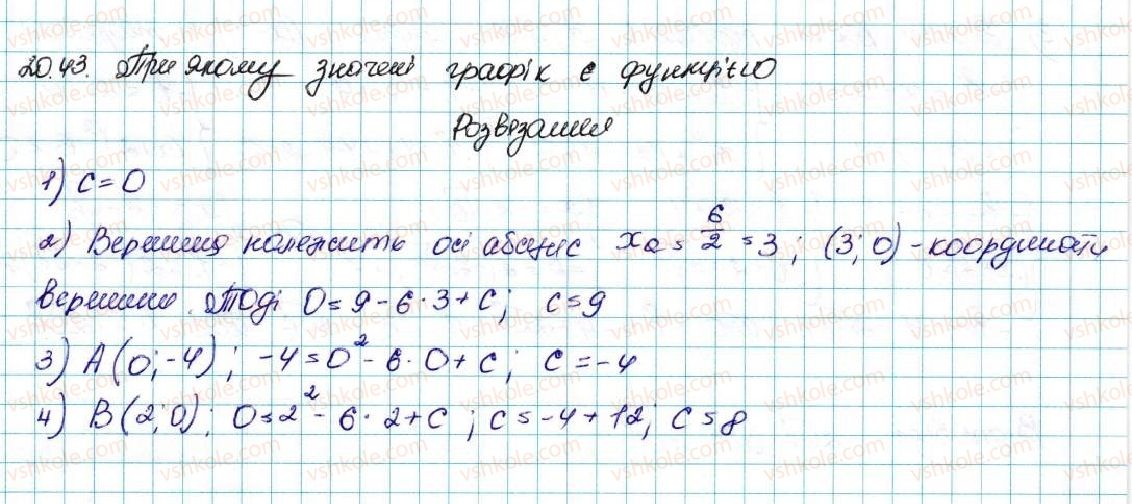 20.43. При якому значені графік є функцією
Розв'язання
1) c = 0
2) Вершина належить осі абсцис x₀ = 6/2 = 3; (3; 0) - координати
вершини. Тоді 0 = 9 - 6·3 + c; c = 9
3) A(0; -4); -4 = 0² - 6·0 + c; c = -4
4) B(2; 0); 0 = 2² - 6·2 + c; c = -4 + 12; c = 8